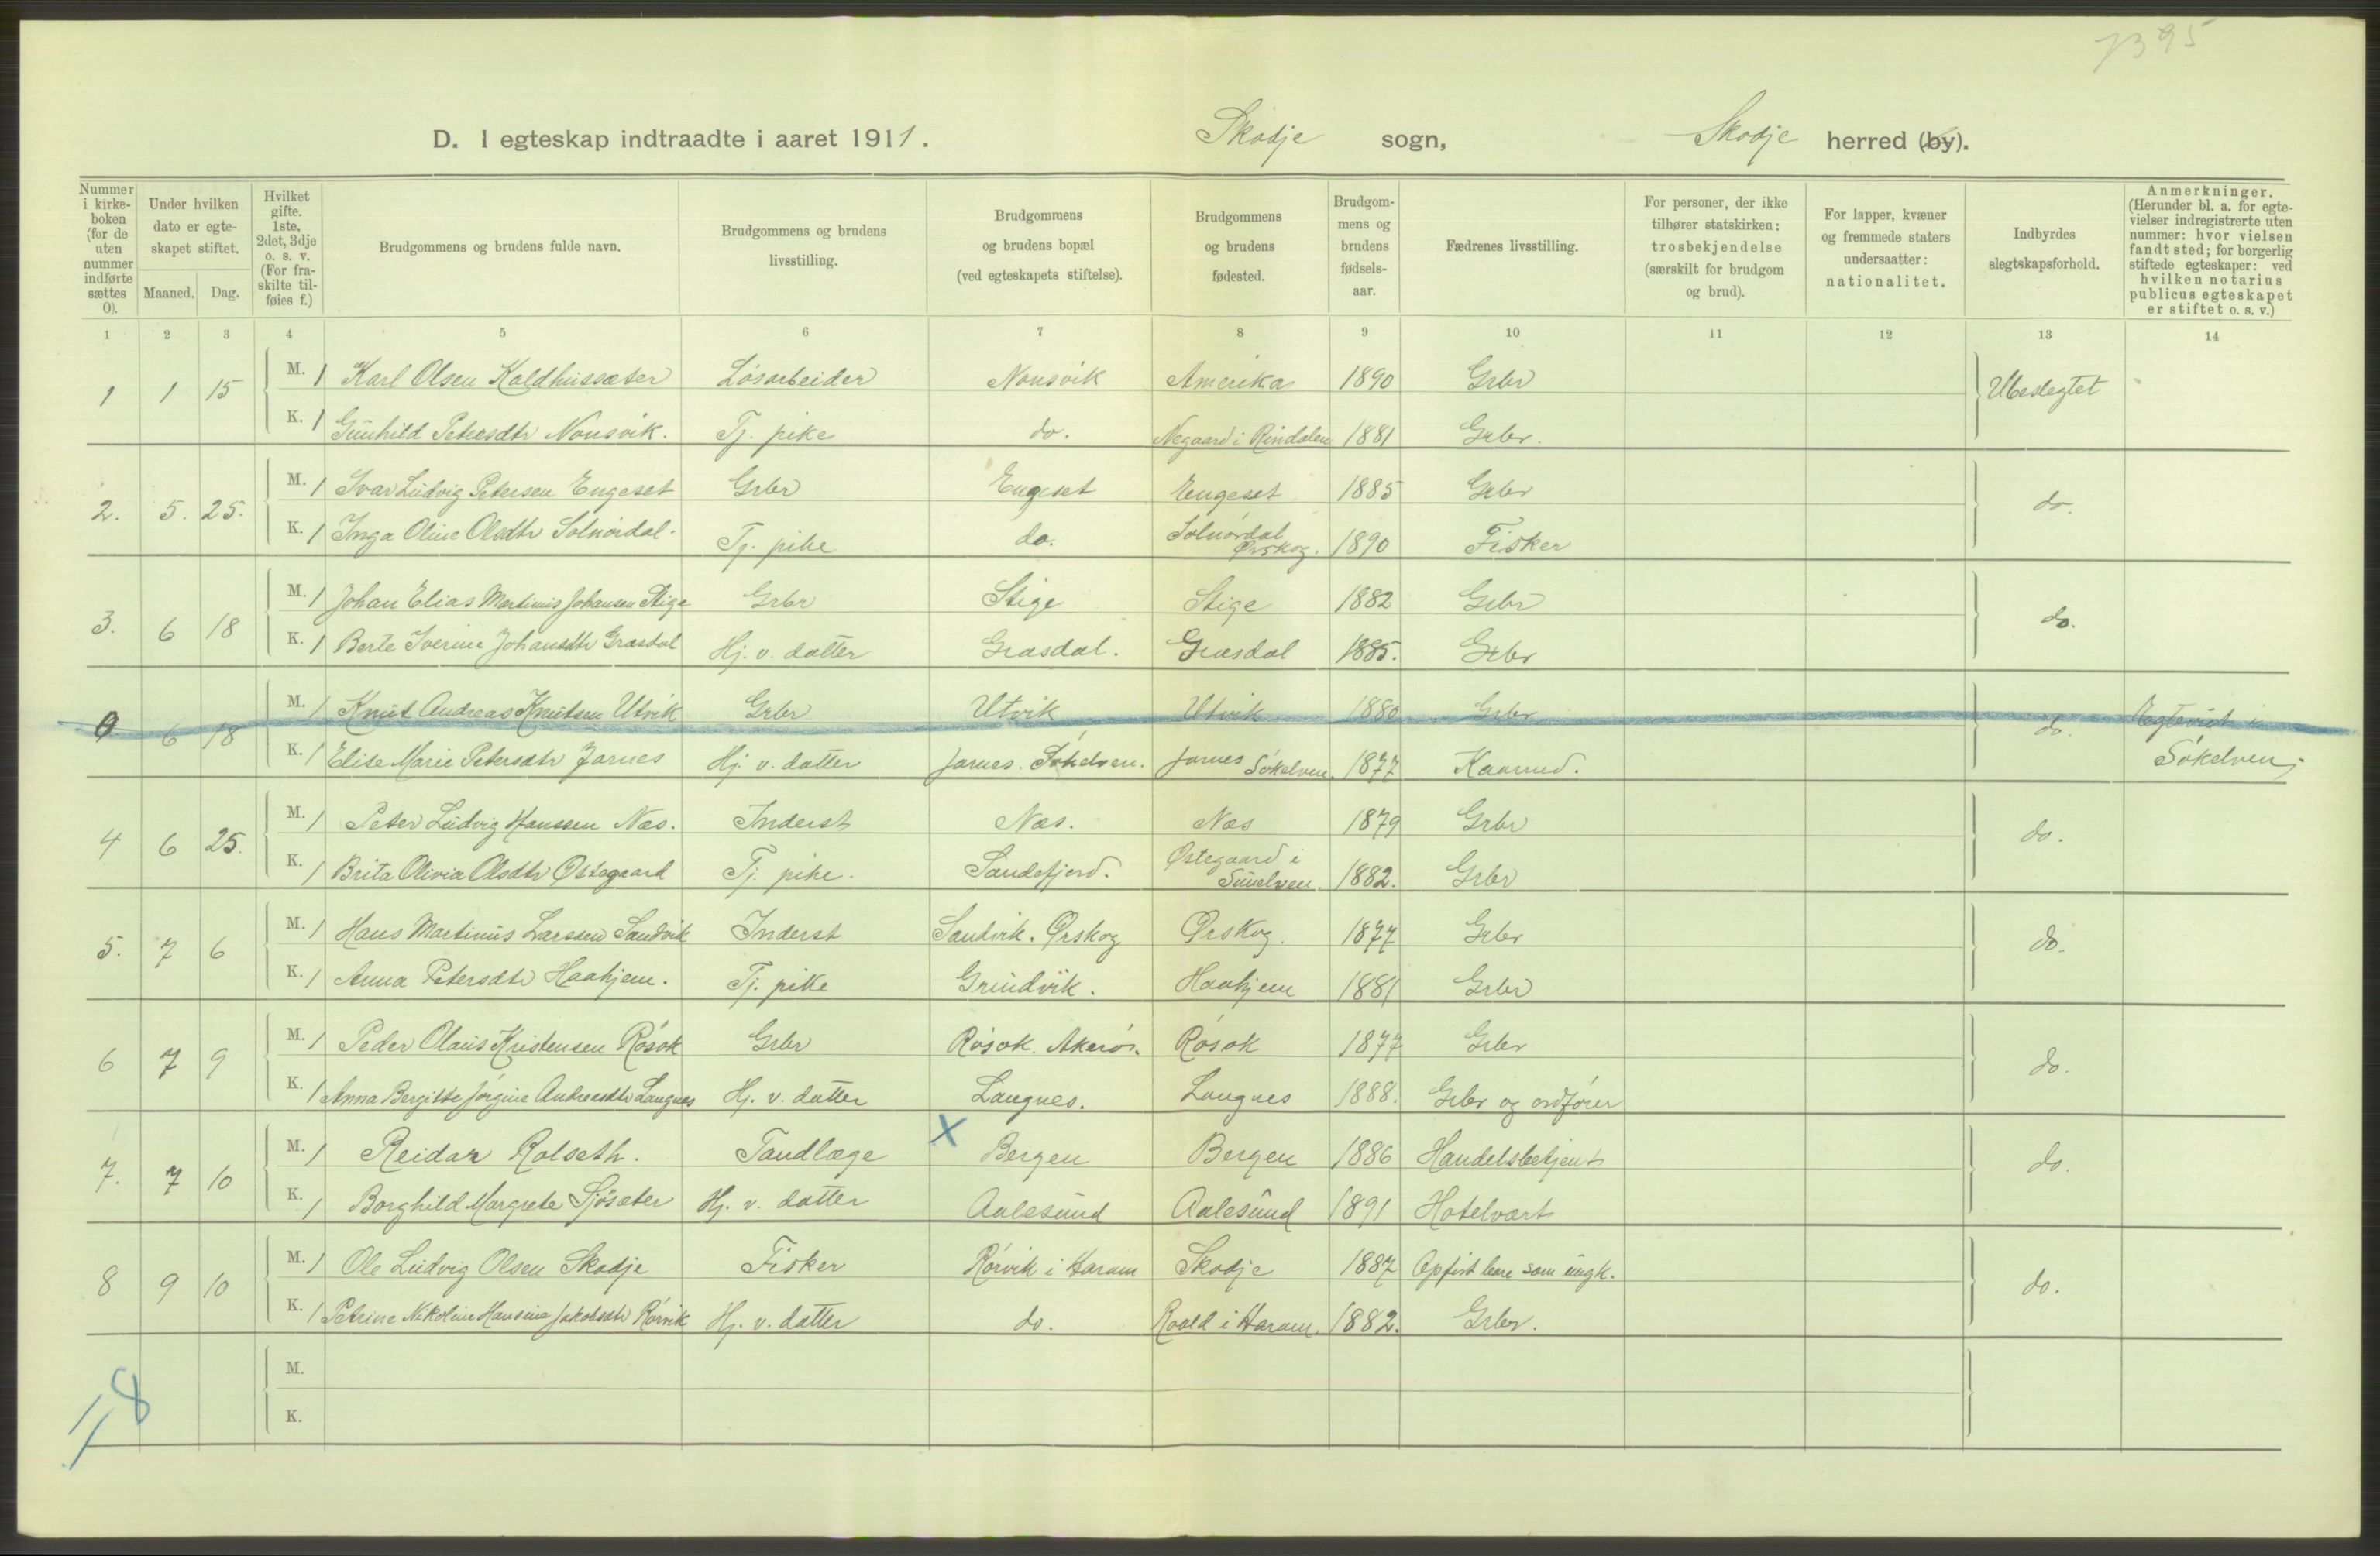 7395
D. I egteskap indtraadte i aaret 1911. Skodje sogn, Skodje herred (by).
Nummer i kirkeboken (for de uten nummer indførte sættes 0).
Under hvilken dato er egteskapet stiftet.
Maaned. Dag.
Hvilket gifte. 1ste, 2det, 3dje o. s. v. (For fraskilte tilføies f.)
Brudgommens og brudens fulde navn.
Brudgommens og brudens livsstilling.
Brudgommens og brudens bopæl (ved egteskapets stiftelse).
Brudgommens og brudens fødested.
Brudgommens og brudens fødselsaar.
Fædrenes livsstilling.
For personer, der ikke tilhører statskirken: trosbekjendelse (særskilt for brudgom og brud).
For lapper, kvæner og fremmede staters undersaatter: nationalitet.
Indbyrdes slegtskapsforhold.
Anmerkninger. (Herunder bl. a. for egtevielser indregistrerte uten nummer: hvor vielsen fandt sted; for borgerlig stiftede egteskaper: ved hvilken notarius publicus egteskapet er stiftet o. s. v.)
1 2 3 4 5 6 7 8 9 10 11 12 13 14
1 1 15 M. 1 Karl Olsen Koldhussæter Løsarbeider Nonsvik Amerika 1890 Grbr Ubeslegtet
K. 1 Gunhild Petersdtr Nonsvik. Tj. pike do. Negaard i Rindalen 1881 Grbr.
2. 5. 25. M. 1 Ivar Ludvig Petersen Engeset Grbr Engeset Engeset 1885 Grbr do.
K. 1 Inga Oline Olsdtr Solnørdal. Tj. pike do. Solnørdal Ørskog. 1890 Fisker
3. 6 18 M. 1 Johan Elias Martinus Johansen Stige Grbr Stige Stige 1882 Grbr do.
K. 1 Berte Iverine Johansdtr Grasdal Hj. v. datter Grasdal. Grasdal 1885. Grbr
0 6 18 M. 1 Knut Andreas Knutsen Utvik Grbr Utvik Utvik 1880 Grbr do. Egteviet i
K. 1 Elise Marie Petersdtr Jarnes Hj. v. datter Jarnes. Søkelven. Jarnes Søkelven. 1877 Kaarmd. Søkelven.
4 6 25. M. 1 Peter Ludvig Hanssen Næs. Inderst Næs. Næs 1879 Grbr do.
K. 1 Brita Olivia Olsdtr Østegaard Tj. pike. Sandefjord. Østegaard i Sunelven. 1882. Grbr
5. 7 6 M. 1 Hans Martinus Larssen Sandvik Inderst Sandvik. Ørskog Ørskog. 1877 Grbr do.
K. 1 Anna Petersdtr Haahjem. Tj. pike Grindvik. Haahjem 1881 Grbr
6 7 9 M. 1 Peder Olaus Kristensen Røsok Grbr Røsok. Akerø. Røsok 1877 Grbr do.
K. 1 Anna Bergitte Jørgine Andreasdtr Langnes Hj. v. datter Langnes. Langnes 1888. Grbr og ordfører
7. 7 10 M. 1 Reidar Rolseth. Tandlæge X Bergen Bergen 1886 Handelsbetjent do.
K. 1 Borghild Margrete Sjøsæter Hj. v. datter Aalesund Aalesund 1891 Hotelvært
8 9 10 M. 1 Ole Ludvig Olsen Skodje Fisker Rørvik i Haram Skodje 1887 Opfist bare som ungk. do.
K. 1 Petrine Nikoline Hansine Jakobsdtr Rørvik Hj. v. datter do. Roald i Haram. 1882. Grbr.
M.
K.
8